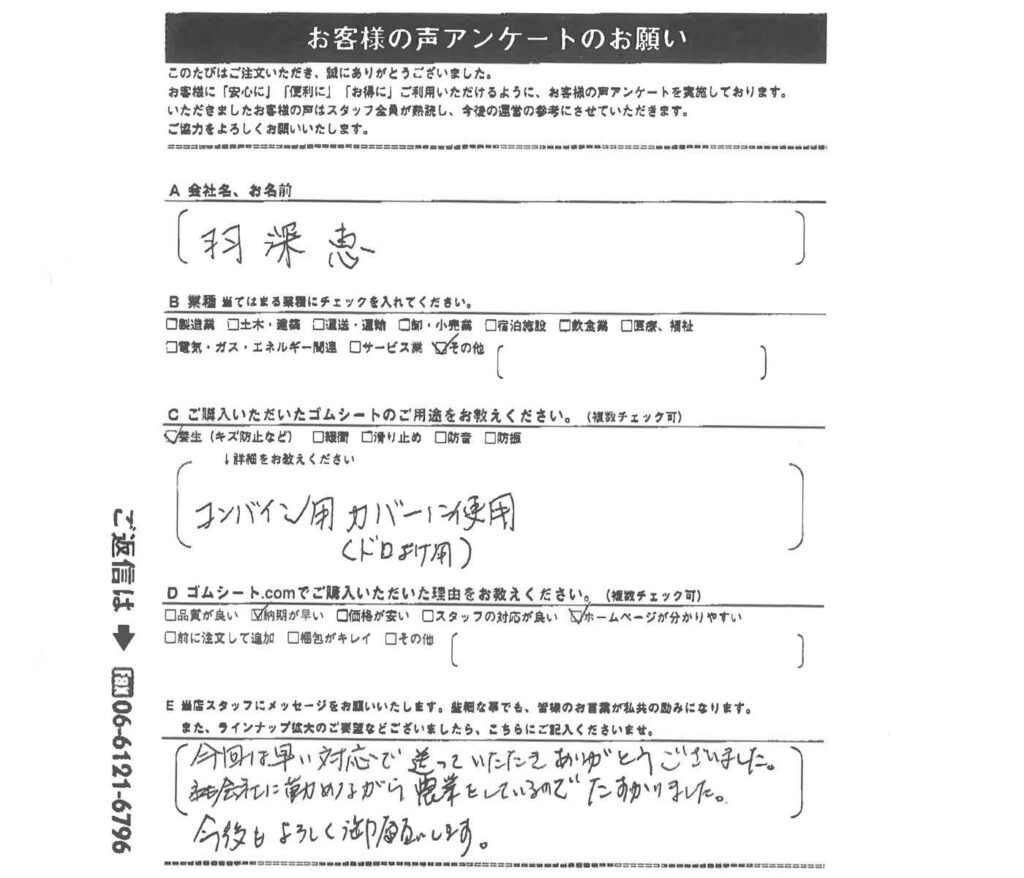 お客様の声アンケートのお願い
このたびはご注文いただき、誠にありがとうございました。
お客様に「安心に」「便利に」「お得に」ご利用いただけるように、お客様の声アンケートを実施しております。
いただきましたお客様の声はスタッフ全員が熟読し、今後の運営の参考にさせていただきます。
ご協力をよろしくお願いいたします。
A 会社名、お名前
羽深恵
B 業種 当てはまる業種にチェックを入れてください。
□製造業 □土木・建築 □運送・運輸 □卸・小売業 □宿泊施設 □飲食業 □医療、福祉
□電気・ガス・エネルギー関連 □サービス業 ☑その他
C ご購入いただいたゴムシートのご用途をお教えください。(複数チェック可)
☑養生(キズ防止など) □緩衝 □滑り止め □防音 □防振
↓詳細をお教えください
コンバイン用カバーに使用
(ドロよけ用)
D ゴムシート.comでご購入いただいた理由をお教えください。(複数チェック可)
□品質が良い ☑納期が早い □価格が安い □スタッフの対応が良い ☑ホームページが分かりやすい
□前に注文して追加 □梱包がキレイ □その他
E 当店スタッフにメッセージをお願いいたします。些細な事でも、皆様のお言葉が私共の励みになります。
また、ラインナップ拡大のご要望などございましたら、こちらにご記入くださいませ。
今回は早い対応で送っていただきありがとうございました。
会社に勤めながら農業をしているのでたすかりました。
今後もよろしく御願いします。
ご返信は → FAX 06-6121-6796